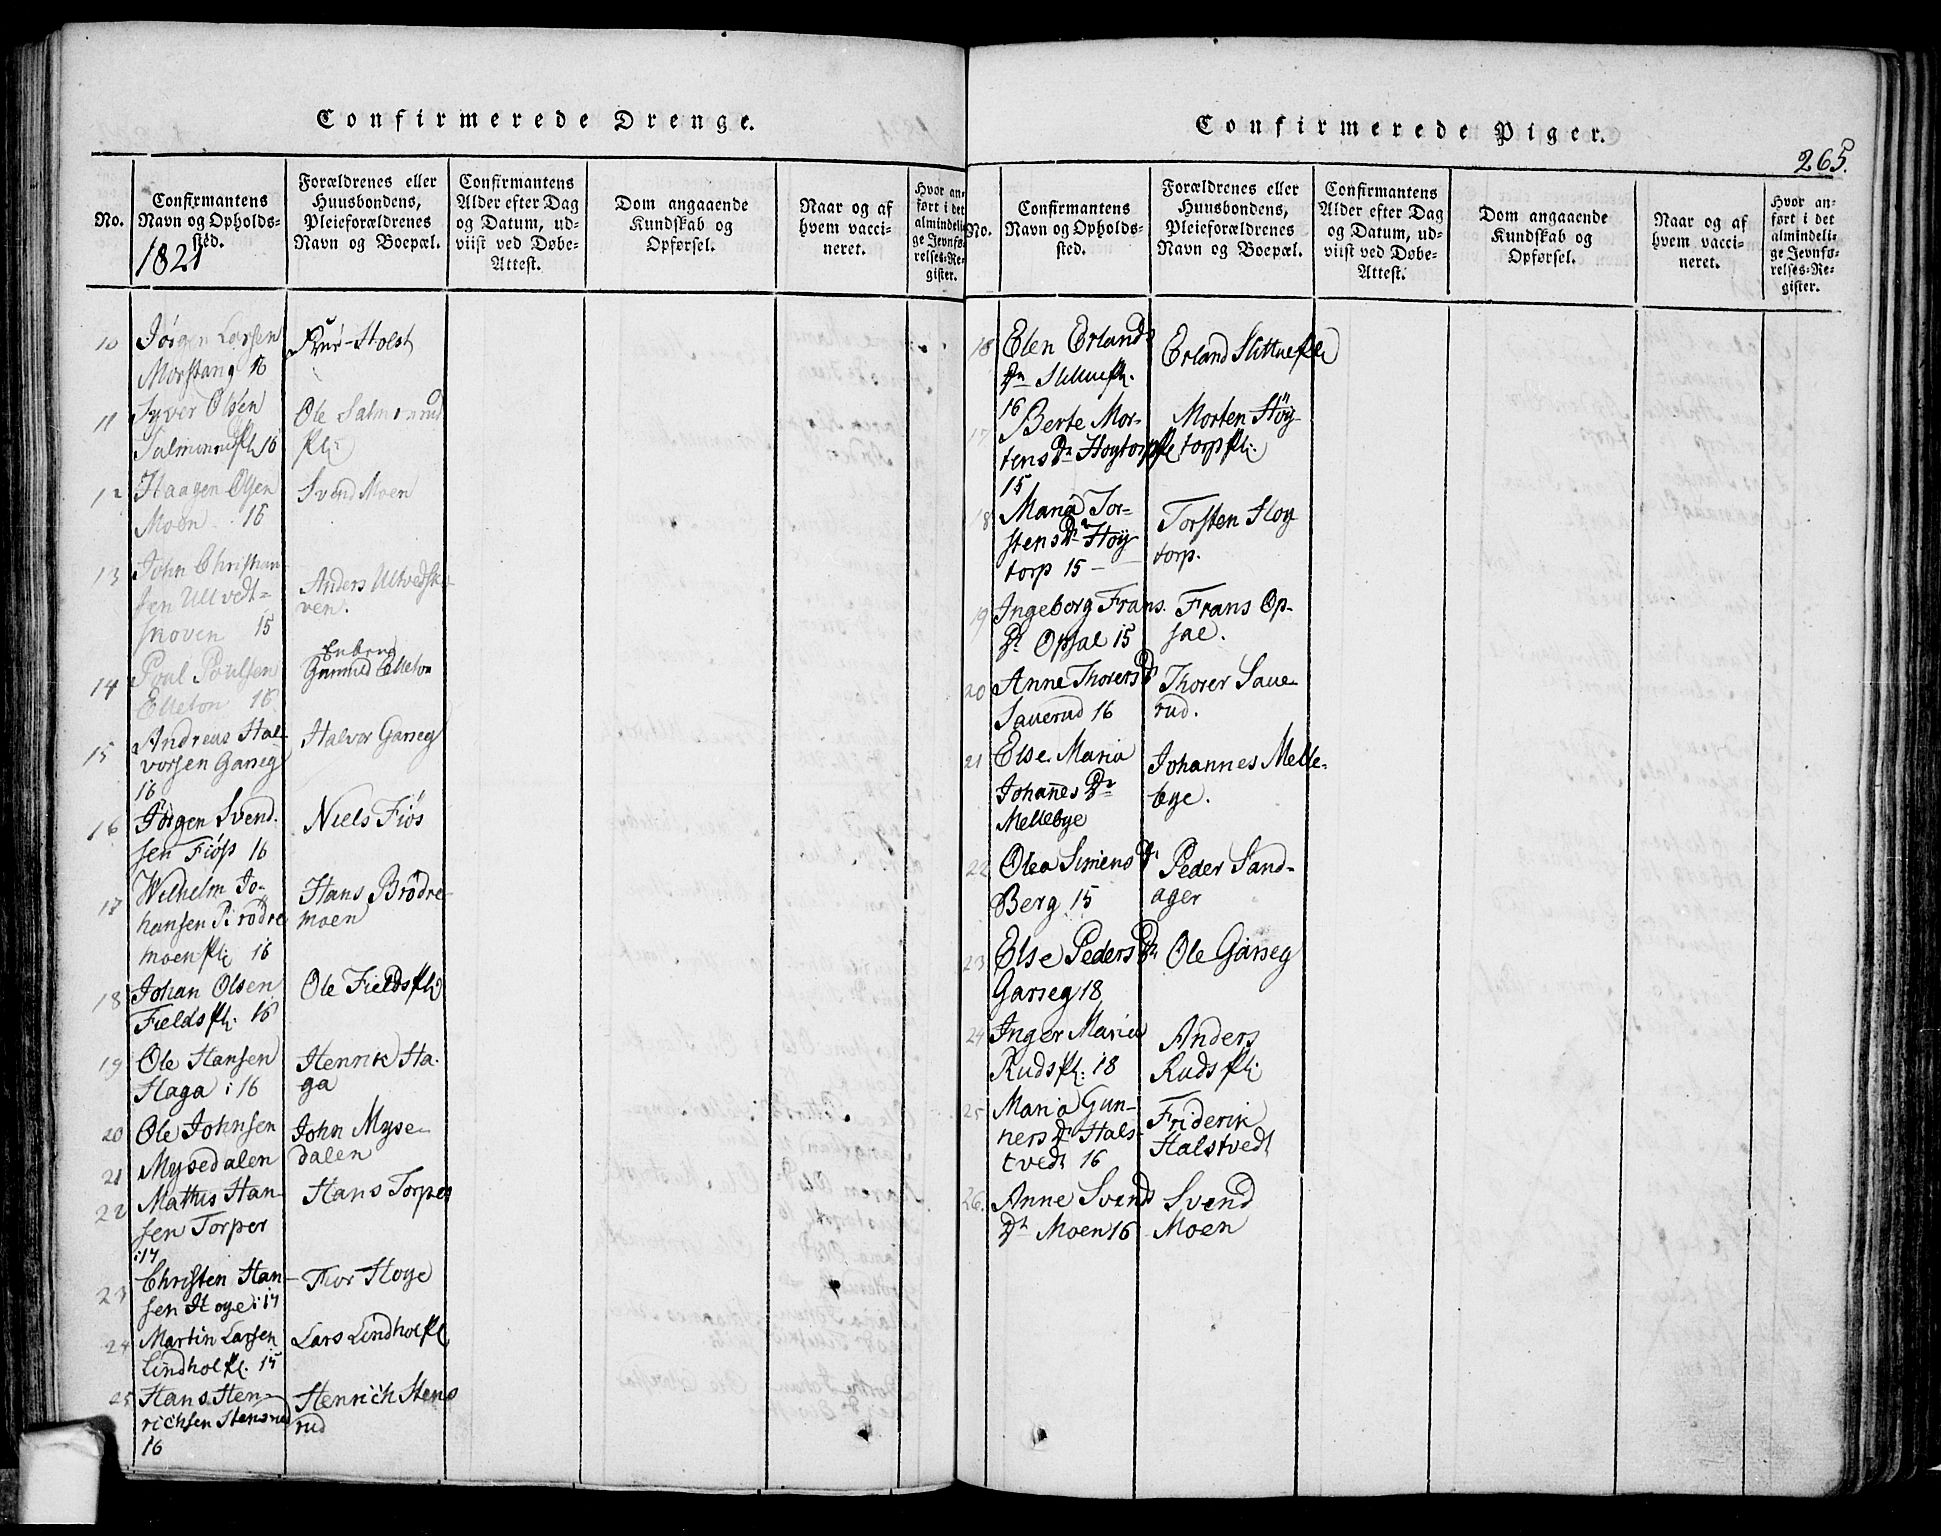 Confirmerede Drenge.
No.
Confirmantens
Navn og Opholds-
sted.
1821
Forældrenes eller
Huusbondens,
Pleieforældrenes
Navn og Boepæl.
Confirmantens
Alder efter Dag
og Datum, ud-
viist ved Døbe-
Attest.
Dom angaaende
Kundskab og
Opførsel.
Naar og af
hvem vacci-
neret.
Hvor an-
ført i det
almindeli-
ge Jevnfø-
relses-Re-
gister.
10 Jørgen Larsen
Morstang 16
Holst
11 Syver Olsen
16
Ole
Pl:
12 Haagen Olsen
Moen 16
Svend Moen
13 John Christian-
sen Ultvedt-
15
Anders
ven.
14 Poul Poulsen
Elleton 16
Elleton
15 Andreas Hal-
vorsen Garseg
16
Halvor Garseg
16 Jørgen Svend-
sen Fiøs 16
Niels Fiøs
17 Wilhelm Jo-
hansen Brödre
moen Pl: 16
Hans Brödre-
moen
18 Johan Olsen
Fields Pl: 16
Ole Fields Pl:
19 Ole Hansen
Haga : 16
Henrik Ha-
ga
20 Ole Johnsen
21 Mysedalen
John Myse-
dalen
22 Mathis Han-
sen Torper
:17
Hans Torper
23 Christen Han-
sen Hoye : 17
Thor Hoye
24 Martin Larsen
Lindhol Pl. 15
Lars Lindhol Pl
25 Hans Hen-
richsen Stensrud
16
Henrich Stens
rud
Confirmerede Piger.
265.
No.
Confirmantens
Navn og Opholds-
sted.
Forældrenes eller
Huusbondens,
Pleieforældrenes
Navn og Boepæl.
Confirmantens
Alder efter Dag
og Datum, ud-
viist ved Døbe-
Attest.
Dom angaaende
Kundskab og
Opførsel.
Naar og af
hvem vacci-
neret.
Hvor an-
ført i det
almindeli-
ge Jevnfø-
relses-Re-
gister.
Elen Erlands
Dr Slittue Pl.
16
Erland Slittue Pl:
17 Berte Mor-
tens Dr Hoytorp Pl
15
Morten Höy
torp Pl:
18 Maria Tor-
stens Dr Höy
torp 15 -
Torsten Hoy
torp.
19 Ingeborg Frans
Dr Opsal 15
Frans Op-
sal.
20 Anne Thorers Dr
Sauerud 16
Thorer Saue-
rud.
21 Else Maria
Johanes Dr
Mellebye
Johannes Melle-
bye.
22 Olea Simens Dr
Berg 15
Peder Sand-
ager
23 Else Peders Dr
Garseg 18
Ole Garseg
24 Inger Maria
Ruds Pl: 18
Anders
Ruds Pl:
25 Maria Gun-
ners Dr Hals-
tvedt 16
Friderik
Halstvedt
26. Anne Svend
Dr Moen 16
Svend
Moen